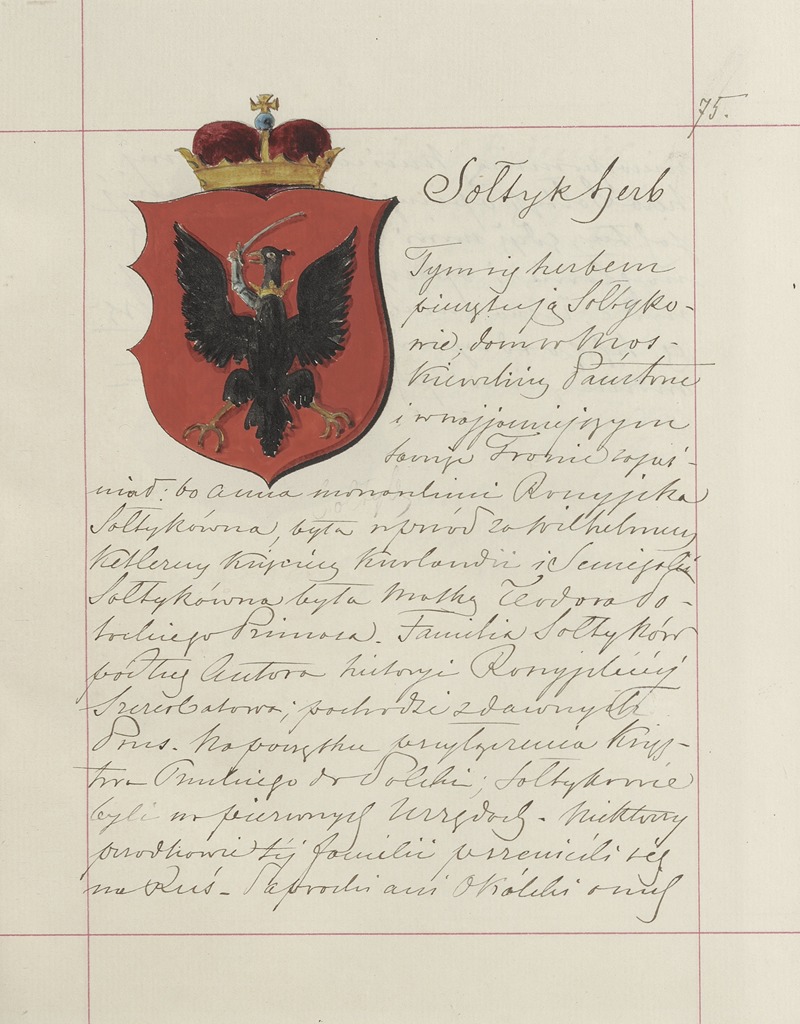 75.
Sołtyk herb
Tym się herbem
pieczętują Sołtyko-
wie, dom w Mos-
kiewskiej Państwie
i w najjaśniejszym
Tronie zajaś-
niał: bo Anna monarchini Rossyjska
Sołtykówna, była wprzód za Wilhelmem
Ketlerem Księciem Kurlandii i Semigalii
Sołtykówna była Matką Teodora Po-
tockiego Primasa. Familia Sołtyków
podług Autora historyi Rossyjskiéj
Szczerbatowa; pochodzi z dawnych
Prus. Na początku przyłączenia Księ-
twa Pruskiego do Polski; Sołtykowie
byli w pierwszych Urzędach. Niektórzy
przodkowie téj familii przenieśli się
na Ruś. Paprocki ani Okólski o nich